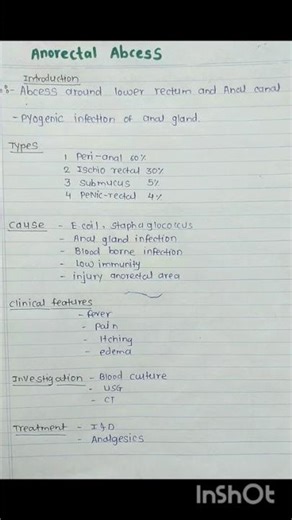 Anorectal Abcess
Introduction
:- Abcess around lower rectum and Anal canal
- Pyogenic infection of anal gland.
Types
1 Peri-anal 60%
2 Ischio rectal 30%
3 Submucus 5%
4 Pelvic-rectal 4%
Cause - E coil, Staphaglococcus
- Anal gland infection
- Blood borne infection
- Low immunity
- injury anorectal area
Clinical features
- fever
- Pain
- Itching
- edema
Investigation - Blood culture
- USG
- CT
Treatment - I & D
- Analgesics
InShOt